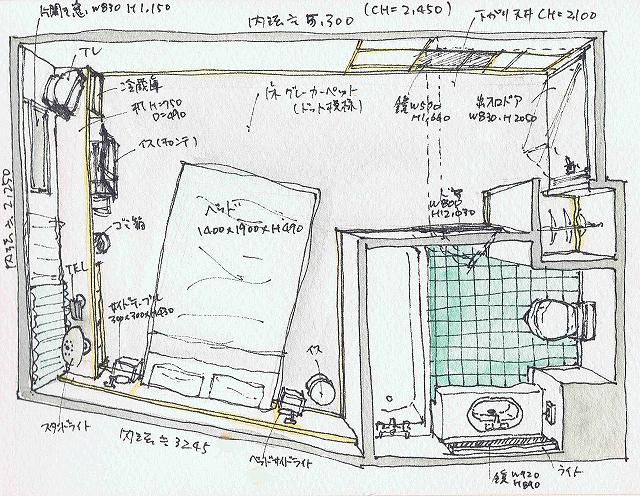 片開き窓 W830 H1,150
内法≒5,300
(CH=2,450)
下がり天井 CH=2100
TV
冷蔵庫
机 H=750
D=490
濃グレーカーペット
(ドット模様)
鏡W500
H1,640
出入口ドア
W830.H2000
イス(チャンテ)
内法≒2,250
ベッド
1400×1900×H490
ドア
W800
H2,030
ゴミ箱
TEL
サイドテーブル
300×300×H430
イス
スタンドライト
内法≒3245
ベッドサイドライト
鏡 W920
H890
ライト